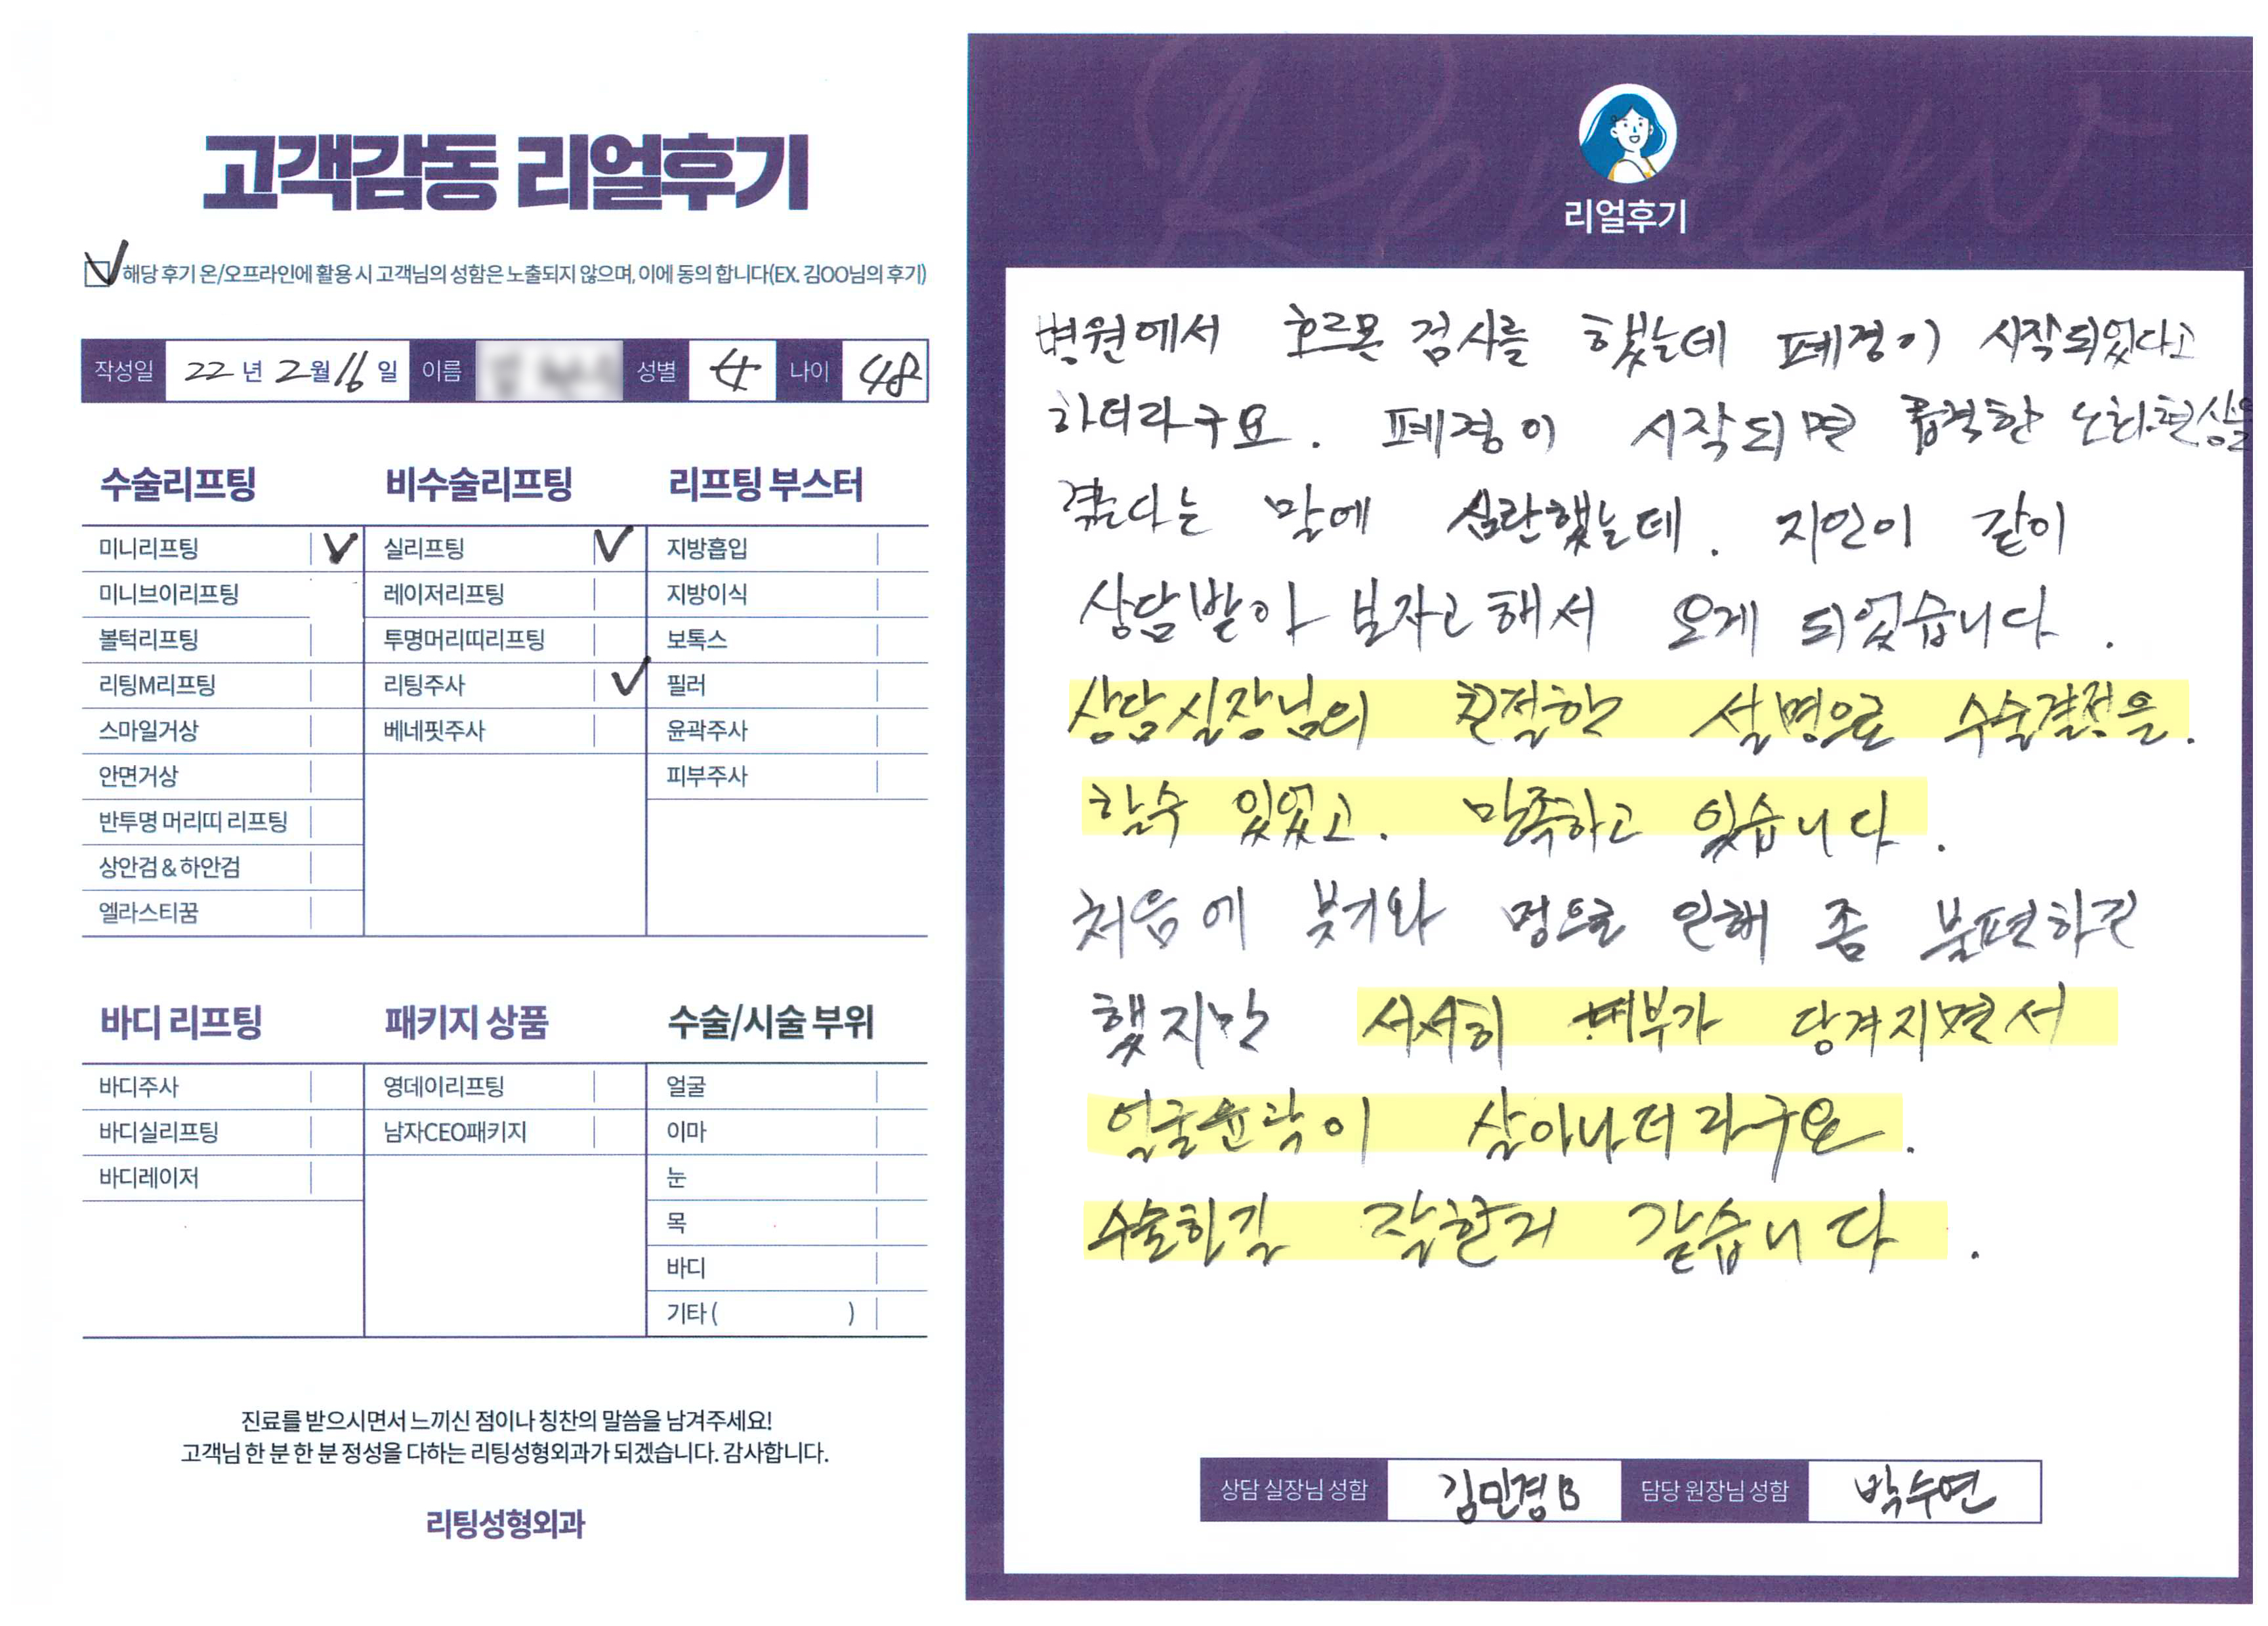 고객감동 리얼후기
해당 후기 온/오프라인에 활용 시 고객님의 성함은 노출되지 않으며, 이에 동의 합니다(EX. 김OO님의 후기)
작성일 22년 2월 16일 이름 성별 여 나이 48
수술리프팅 비수술리프팅 리프팅 부스터
미니리프팅 실리프팅 지방흡입
미니브이리프팅 레이저리프팅 지방이식
볼턱리프팅 투명머리띠리프팅 보톡스
리팅M리프팅 리팅주사 필러
스마일거상 베네핏주사 윤곽주사
안면거상 피부주사
반투명 머리띠 리프팅
상안검 & 하안검
엘라스티꿈
바디 리프팅 패키지 상품 수술/시술 부위
바디주사 영데이리프팅 얼굴
바디실리프팅 남자CEO패키지 이마
바디레이저 눈
목
바디
기타 ( )
진료를 받으시면서 느끼신 점이나 칭찬의 말씀을 남겨주세요!
고객님 한 분 한 분 정성을 다하는 리팅성형외과가 되겠습니다. 감사합니다.
리팅성형외과
Review
리얼후기
병원에서 호르몬 검사를 했는데 폐경이 시작되었다고
하더라구요. 폐경이 시작되면 급격한 노화현상을
겪는다는 말에 심란했는데. 지인이 같이
상담받아 보자고 해서 오게 되었습니다.
상담실장님의 친절한 설명으로 수술결정을.
할수 있었고. 만족하고 있습니다.
처음에 붓기와 멍으로 인해 좀 불편하긴
했지만 서서히 피부가 당겨지면서
얼굴윤곽이 살아나더라구요.
수술하길 잘한거 같습니다.
상담 실장님 성함 김민경B 담당 원장님 성함 박수연